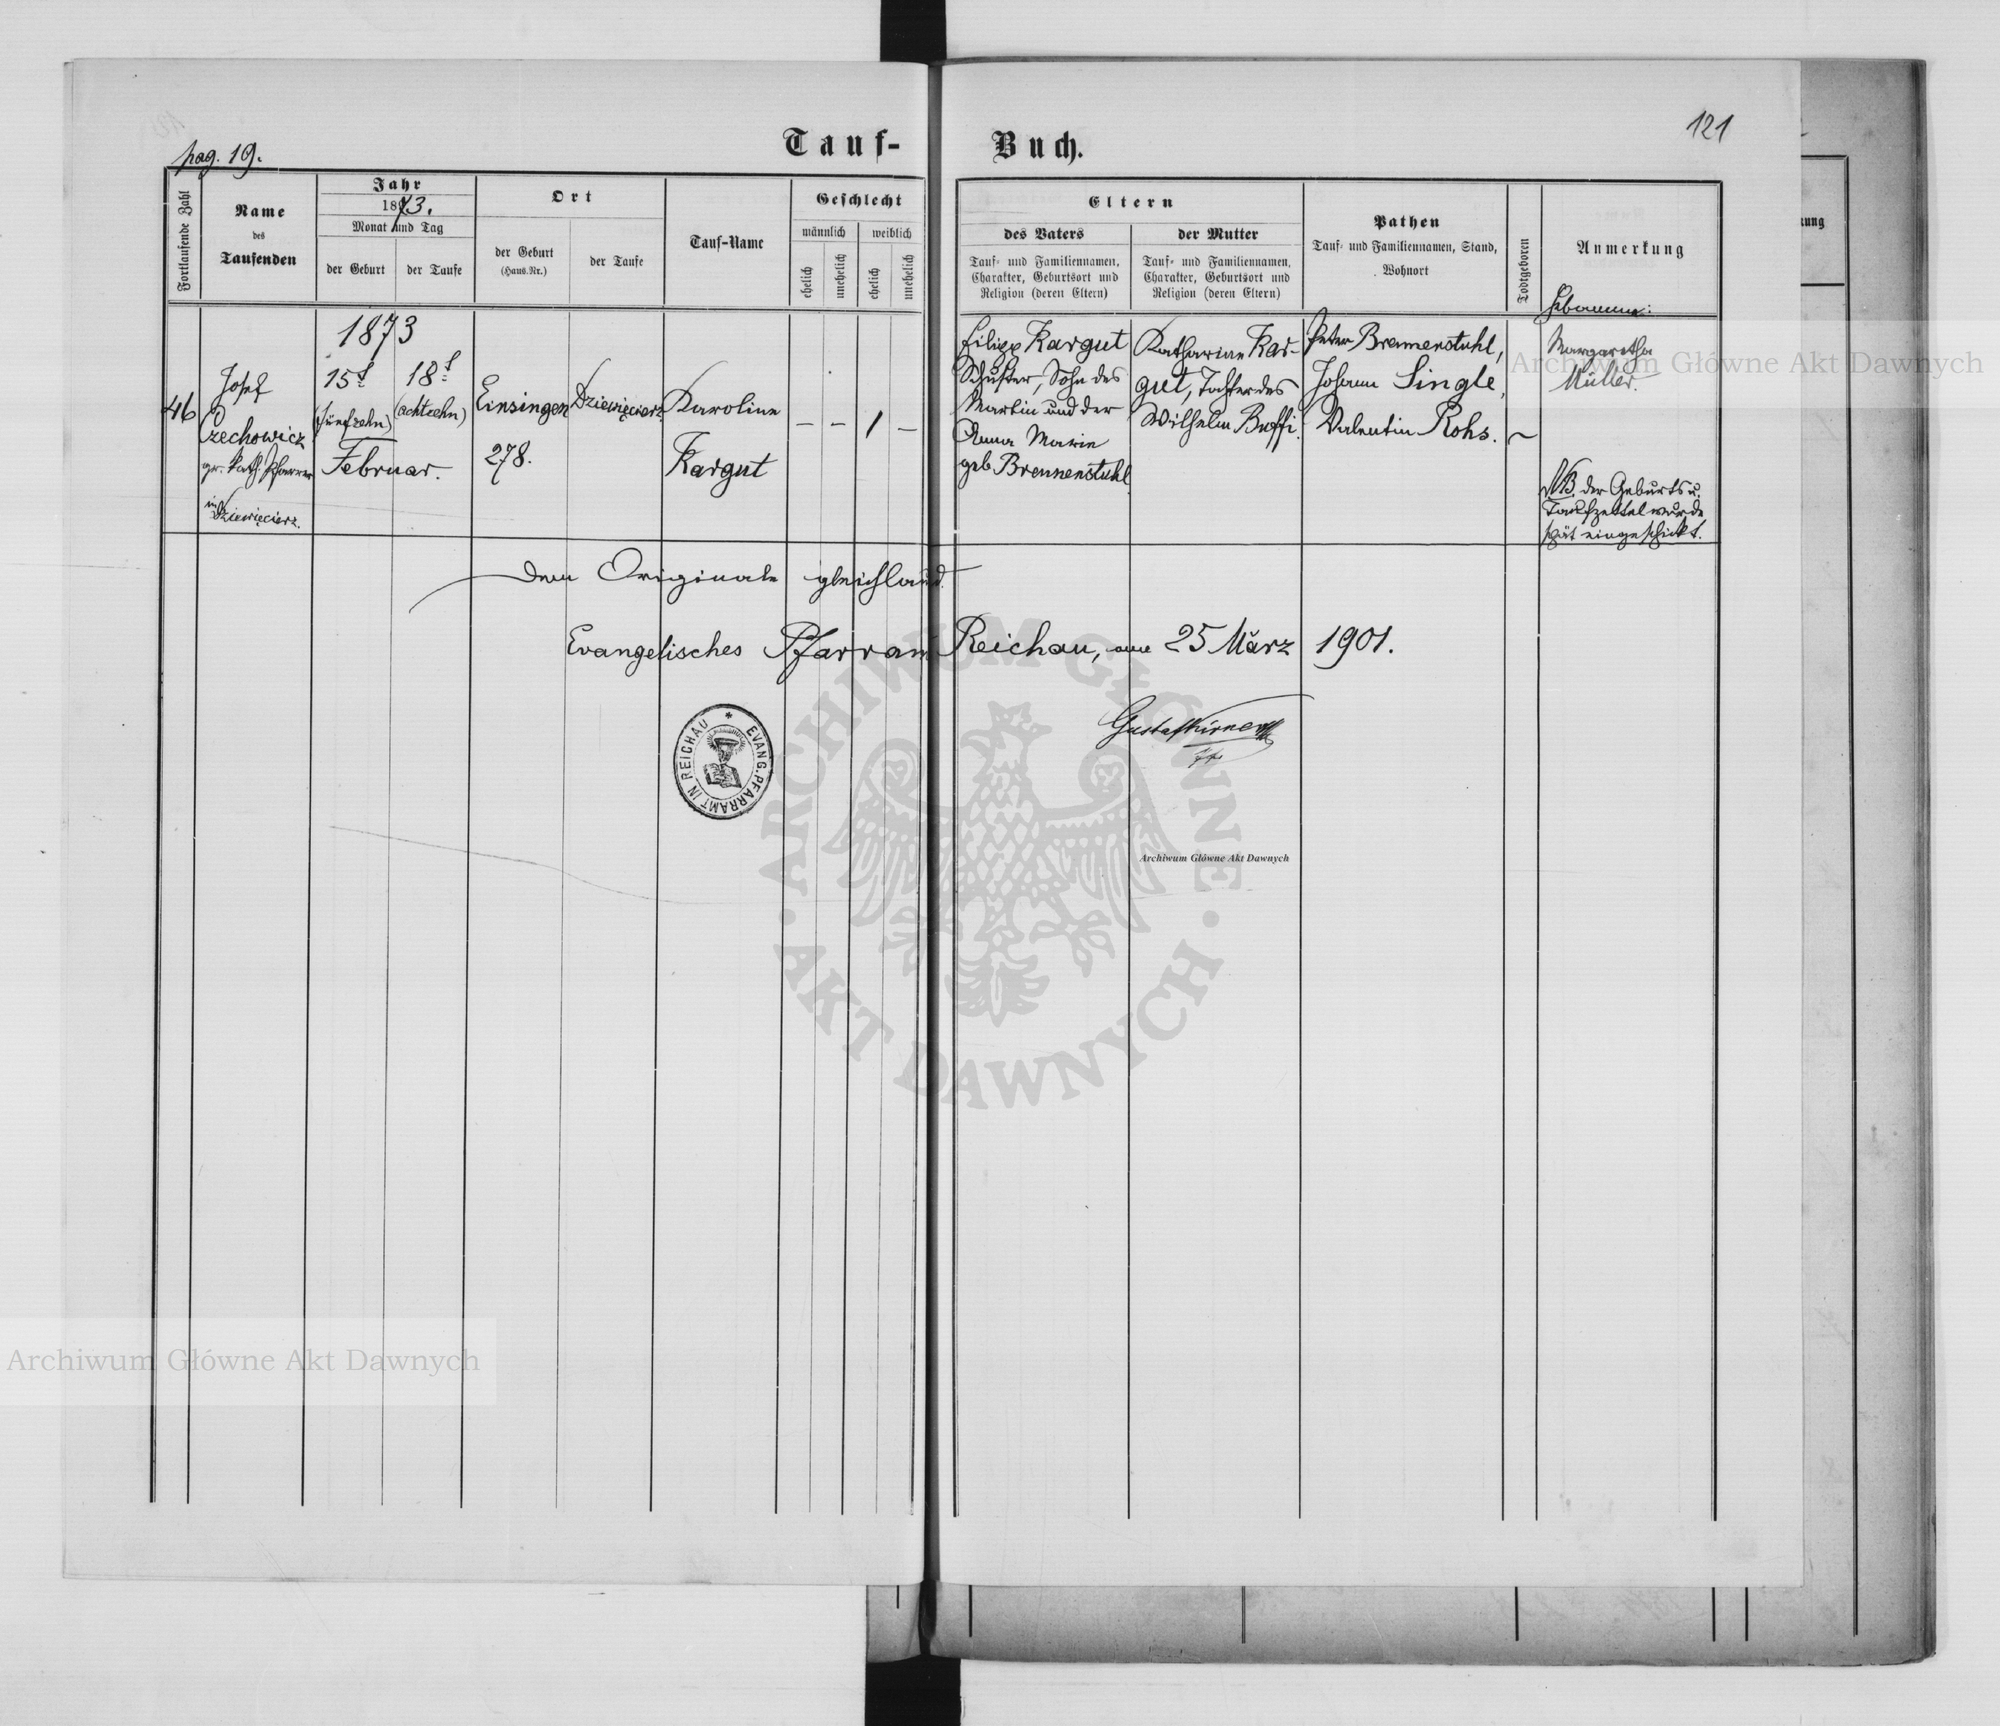 121
Tauf- Buch.
pag. 19.
Fortlaufende Zahl
Name
des
Taufenden
Jahr
1873.
Monat und Tag
der Geburt
der Taufe
Ort
der Geburt
(Haus.Nr.)
der Taufe
Tauf-Name
Geschlecht
männlich
weiblich
ehelich
unehelich
ehelich
unehelich
Eltern
des Vaters
Tauf- und Familiennamen,
Charakter, Geburtsort und
Religion (deren Eltern)
der Mutter
Tauf- und Familiennamen,
Charakter, Geburtsort und
Religion (deren Eltern)
Pathen
Tauf- und Familiennamen, Stand,
Wohnort
Todtgeboren
Anmerkung
kung
46
Josef
Czechowicz
gr. kath. Pfarrer
in
Dziewięcierz.
1873
15t
(fünfzehn)
18t
(achtzehn)
Februar.
Einsingen
278.
Dziewięcierz
Karoline
Kargut
— — 1 —
Filipp Kargut
Schuster, Sohn des
Martin und der
Anna Marie
geb Brennenstuhl
Katharine Kar-
gut, Tochter des
Wilhelm Buffi.
Peter Brennenstuhl,
Johann Single,
Valentin Rohs.
~
Hebamme:
Margaretha
Müller.
NB. der Geburts u.
Taufzettel wurde
spät eingeschickt.
Dem Originale gleichlaud.
Evangelisches Pfarramt Reichau, am 25 März 1901.
EVANG. PFARRAMT IN REICHAU
ARCHIWUM GŁÓWNE AKT DAWNYCH
Archiwum Główne Akt Dawnych
Archiwum Główne Akt Dawnych
Archiwum Główne Akt Dawnych